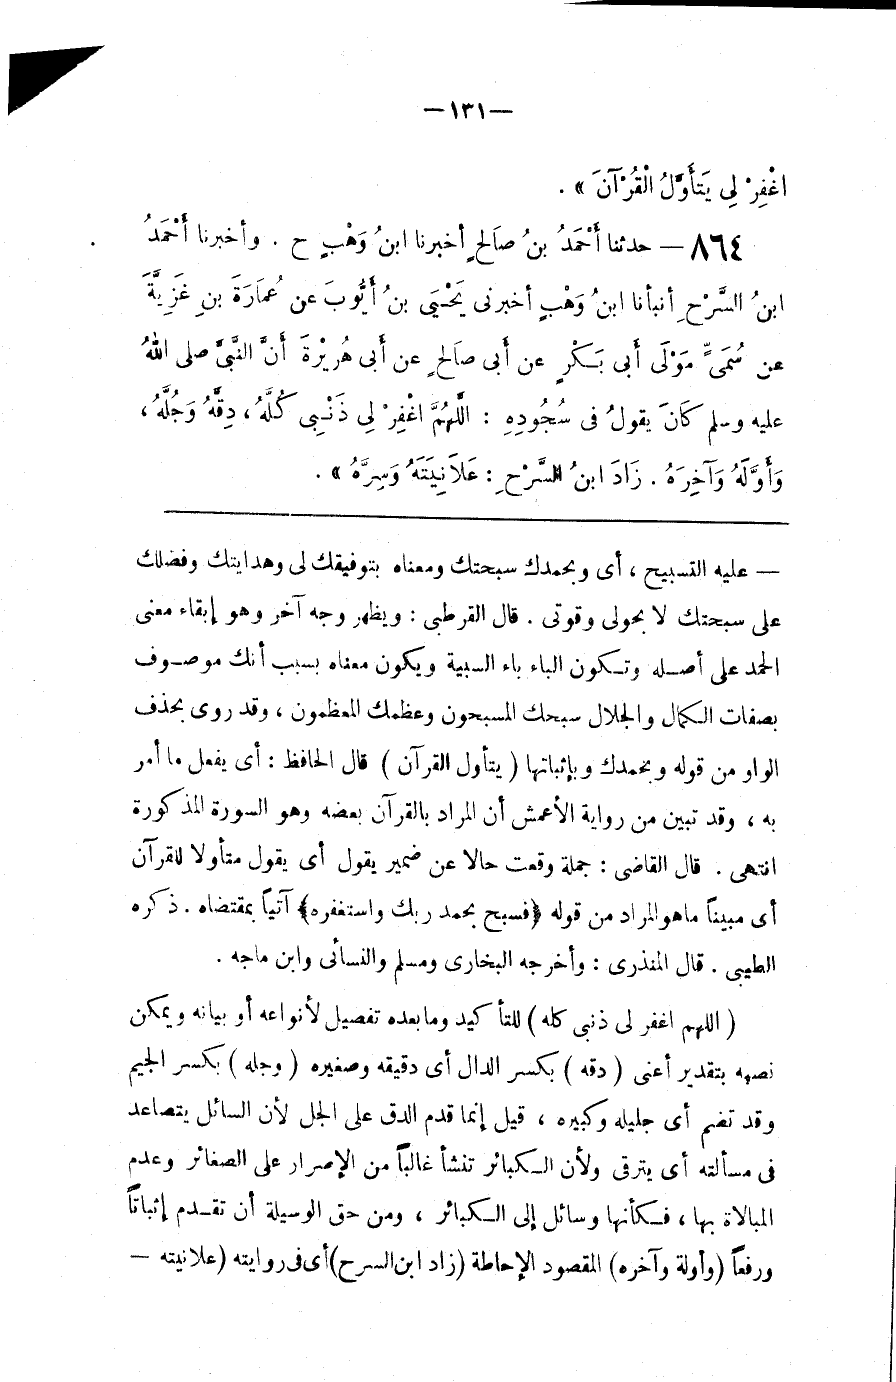 — ١٣١ —
اغْفِرْ لِي يَتَأَوَّلُ الْقُرْآنَ » .
٨٦٤ — حدثنا أَحْمَدُ بنُ صَالحٍ أخبرنا ابنُ وَهْبٍ ح . وأخبرنا أَحْمَدُ
ابنُ السَّرْحِ أنبأنا ابنُ وَهْبٍ أخبرنى يَحْيَى بنُ أَيُّوبَ عن عُمَارَةَ بنِ غَزِيَّةَ
عن سُمَىٍّ مَوْلَى أَبى بَكْرٍ عن أَبى صَالحٍ عن أَبى هُرَيْرَةَ أَنَّ النَّبىَّ صلى اللهُ
عليه وسلم كَانَ يقولُ فى سُجُودِهِ : اللَّهُمَّ اغْفِرْ لِي ذَنْبِى كُلَّهُ ، دِقَّهُ وَجُلَّهُ ،
وَأَوَّلَهُ وَآخِرَهُ . زَادَ ابنُ السَّرْحِ : عَلاَنِيَتَهُ وَسِرَّهُ » .
— عليه التسبيح ، أى وبحمدك سبحتك ومعناه بتوفيقك لى وهدايتك وفضلك
على سبحتك لا بحولى وقوتى . قال القرطبى : ويظهر وجه آخر وهو إبقاء معنى
الحمد على أصله وتكون الباء باء السبية ويكون معناه بسبب أنك موصوف
بصفات الكمال والجلال سبحك المسبحون وعظمك المعظمون ، وقد روى بحذف
الواو من قوله وبحمدك وبإثباتها ( يتأول القرآن ) قال الحافظ : أى يفعل ما أمر
به ، وقد تبين من رواية الأعمش أن المراد بالقرآن بعضه وهو السورة المذكورة
انتهى . قال القاضى : جملة وقعت حالا عن ضمير يقول أى يقول متأولا للقرآن
أى مبيناً ماهو المراد من قوله ﴿فسبح بحمد ربك واستغفره﴾ آتياً بمقتضاه . ذكره
الطيبى . قال المنذرى : وأخرجه البخارى ومسلم والنسائى وابن ماجه .
( اللهم اغفر لى ذنبى كله ) للتأكيد وما بعده تفصيل لأنواعه أو بيانه ويمكن
نصبه بتقدير أعنى ( دقه ) بكسر الدال أى دقيقه وصغيره ( وجله ) بكسر الجيم
وقد تضم أى جليله وكبيره ، قيل إنما قدم الدق على الجل لأن السائل يتصاعد
فى مسألته أى يترقى ولأن الكبائر تنشأ غالباً من الإصرار على الصغائر وعدم
المبالاة بها ، فكأنها وسائل إلى الكبائر ، ومن حق الوسيلة أن تقدم إثباتاً
ورفعاً (وأولة وآخره) المقصود الإحاطة (زاد ابن السرح) أى فى روايته (علانيته —